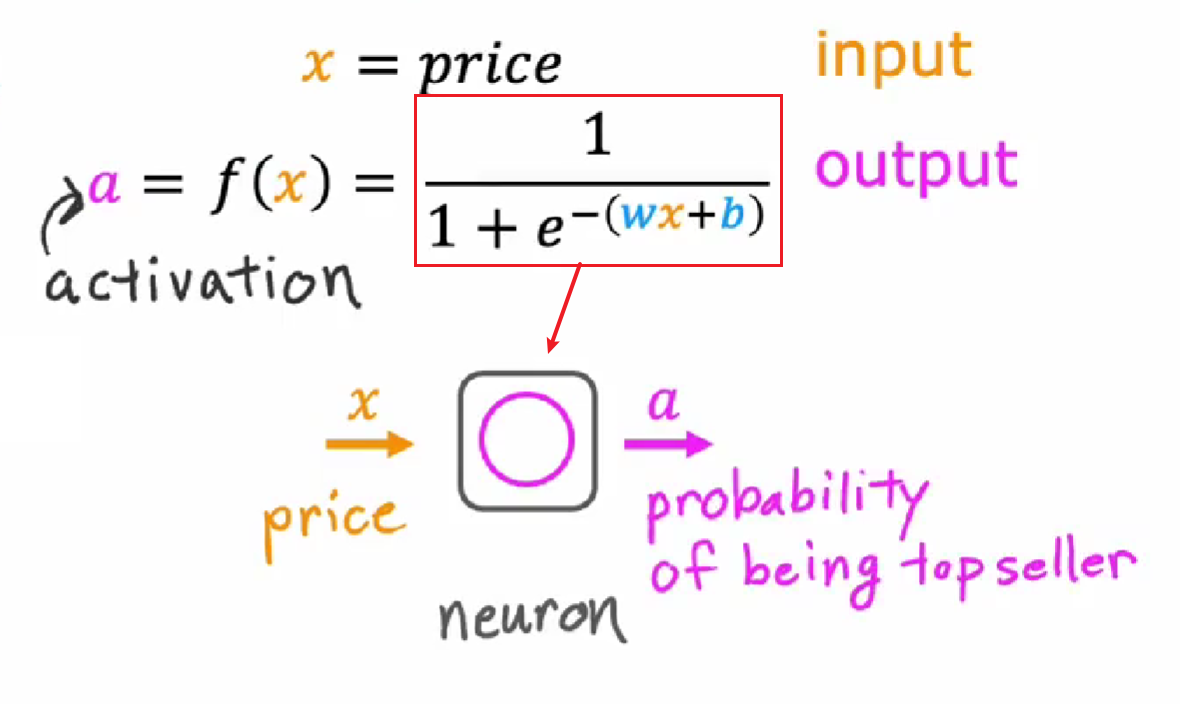 x = price input
a = f(x) = 1 / (1 + e^−(wx+b)) output
activation
x a
price
probability
of being top seller
neuron